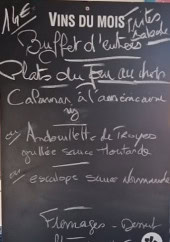 14€
VINS DU MOIS
Buffet d'entrées
Plats du Jour au choix
Calamar à l'américaine
ou Andouillette de Troyes
grillée sauce Moutarde
ou escalope sauce Normande
Fromages - Dessert